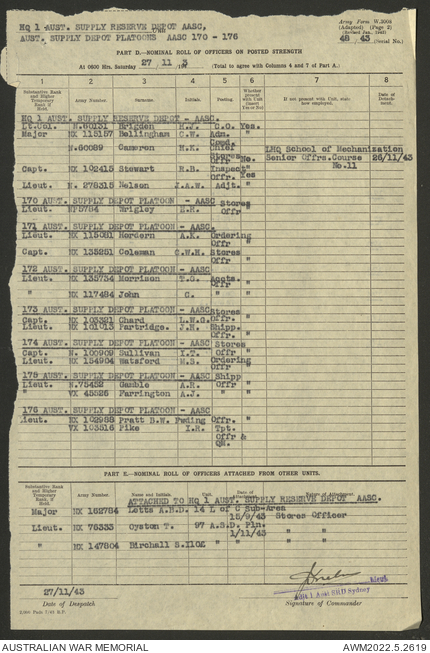 HQ 1 AUST. SUPPLY RESERVE DEPOT AASC,
AUST. SUPPLY DEPOT PLATOONS AASC 170 - 176
Army Form W.3008
(Adapted) (Page 2)
48 43 (Serial No.)
PART D.—NOMINAL ROLL OF OFFICERS ON POSTED STRENGTH
At 0600 Hrs. Saturday 27 11 3 (Total to agree with Columns 4 and 7 of Part A.)
1 2 3 4 5 6 7 8
Substantive Rank and Higher Temporary Rank if Held. Army Number. Surname. Initials. Posting. Whether present with Unit (insert Yes or No) If not present with Unit, state how employed. Date of Detachment.
HQ 1 AUST. SUPPLY RESERVE DEPOT - AASC.
Lt.Col. N.60131 Brigden H.J. C.O. Yes.
Major NX 115157 Bellingham C.W. Adm. Comd. "
" N.60089 Cameron H.K. Chief Stores Offr No. LHQ School of Mechanization Senior Offrs. Course No.11 26/11/43
Capt. NX 102415 Stewart R.B. Inspec. Offr Yes
Lieut. N. 278315 Nelson J.A.W. Adjt. "
170 AUST. SUPPLY DEPOT PLATOON - AASC
Lieut. NF5784 Wrigley E.H. Stores Offr "
171 AUST. SUPPLY DEPOT PLATOON - AASC.
Lieut. NX 115081 Merdern A.K. Ordering Offr "
Capt. NX 135251 Coleman C.W.H. Stores Offr "
172 AUST. SUPPLY DEPOT PLATOON - AASC
Lieut. NX 135754 Morrison T.G. Accts. Offr "
" NX 117484 John G. " "
173 AUST. SUPPLY DEPOT PLATOON - AASC
Capt. NX 103321 Chard L.W.G. Stores Offr. "
Lieut. NX 101013 Partridge. J.H. Shipp. Offr. "
174 AUST. SUPPLY DEPOT PLATOON - AASC
Capt. N. 100909 Sullivan Y.T. Stores Offr "
Lieut. NX 154904 Watsford M.S. Ordering Offr "
175 AUST. SUPPLY DEPOT PLATOON - AASC
Lieut. N.75452 Gamble A.R. Shipp Offr "
" VX 45526 Farrington A.J. " "
176 AUST. SUPPLY DEPOT PLATOON - AASC
Lieut. NX 102988 Pratt B.W. Feeding Offr. "
VX 103516 Pike I.R. Tpt. Offr & QM. "
PART E.—NOMINAL ROLL OF OFFICERS ATTACHED FROM OTHER UNITS.
Substantive Rank and Higher Temporary Rank, if Held. Army Number. Name and Initials. Unit. Date of Attachment. Nature of Attachment.
ATTACHED TO HQ 1 AUST. SUPPLY RESERVE DEPOT AASC.
Major NX 162784 Letts A.B.D. 14 L of C Sub-Area
15/9/43 Stores Officer
Lieut. NX 76333 Oyston T. 97 A.S.D. Pln.
1/11/43 " "
" NX 147804 Birchall S.I. 102 " " " "
27/11/43
Date of Despatch
Lieut.
Adjt 1 Aust SRD Sydney
Signature of Commander
AUSTRALIAN WAR MEMORIAL
AWM2022.5.2619